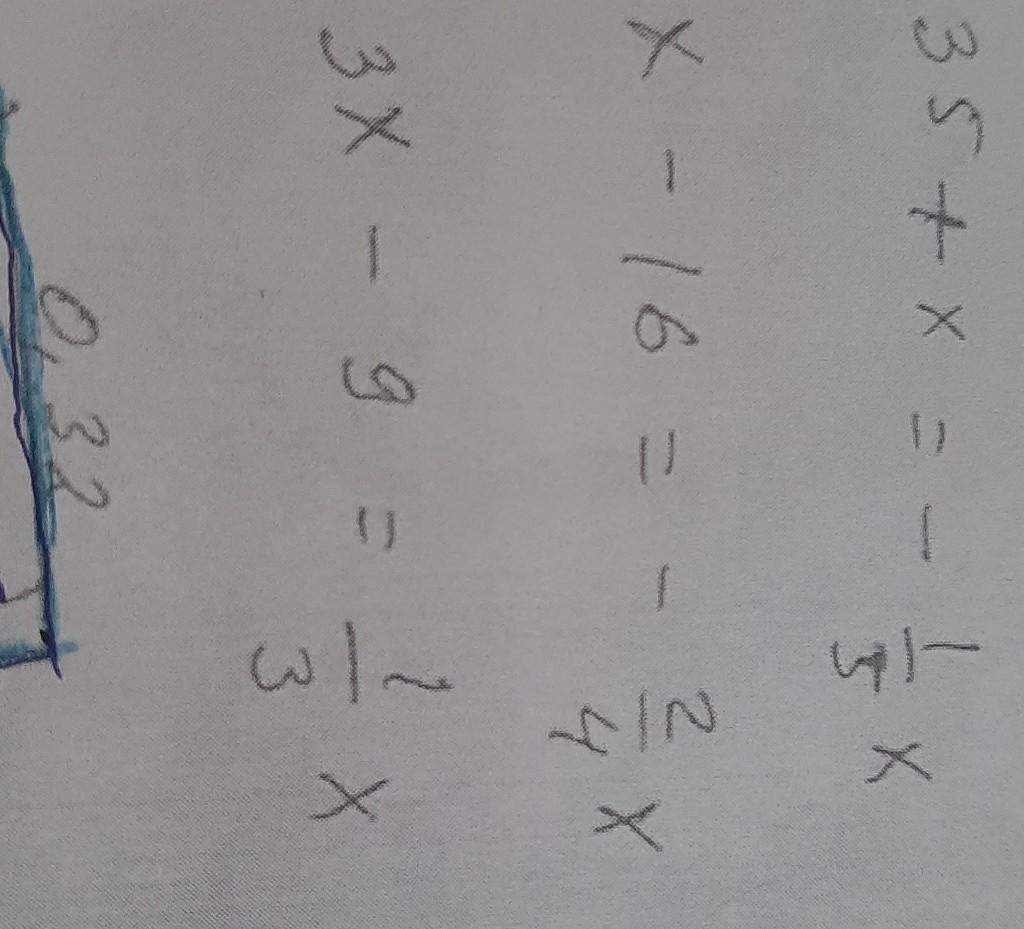 35 + x = - 1/5 x
x - 16 = - 2/4 x
3x - 9 = 1/3 x
0,32